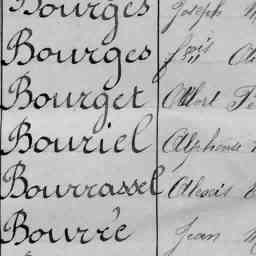 Bourges Joseph
Bourges
Bourget Albert
Bouriel Alphonse
Bourrassel Alexis
Bourré Jean